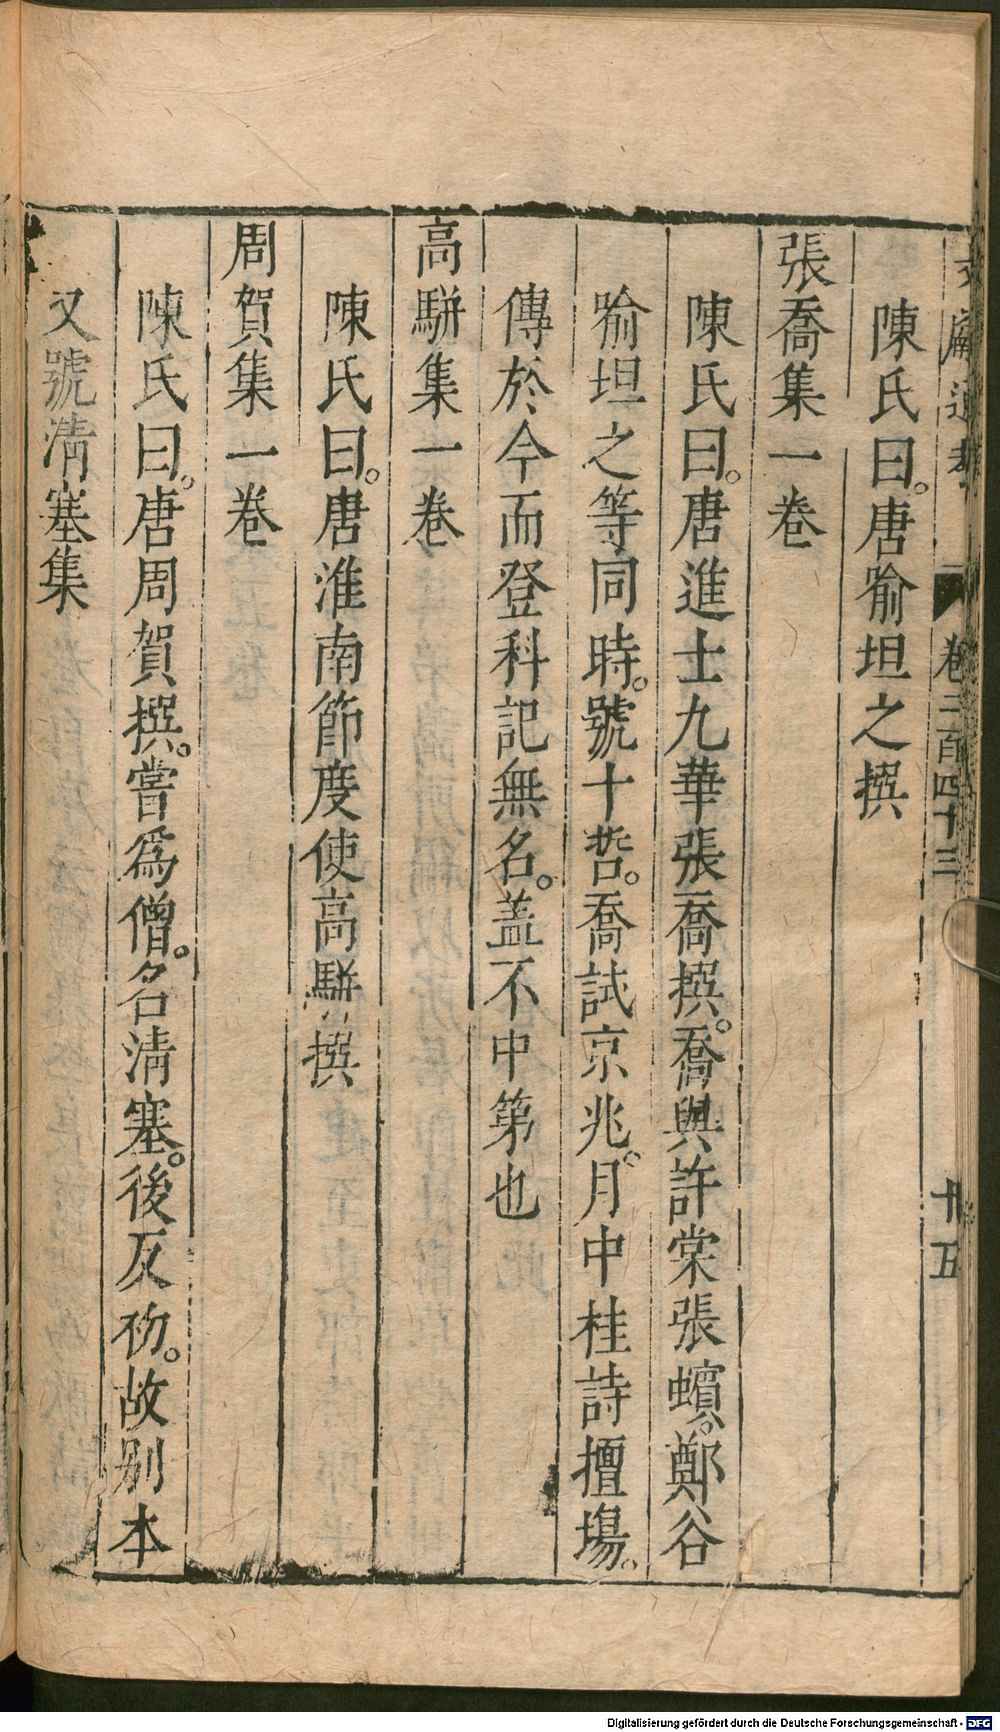 文獻通考 卷二百四十三 十五
陳氏曰。唐喻坦之撰
張喬集一卷
陳氏曰。唐進士九華張喬撰。喬與許棠張蠙。鄭谷
喻坦之等同時。號十哲。喬試京兆。月中桂詩擅塲。
傳於今而登科記無名。盖不中第也
高駢集一卷
陳氏曰。唐淮南節度使高駢撰
周賀集一卷
陳氏曰。唐周賀撰。嘗爲僧。名清塞。後反初。故别本
又號清塞集
Digitalisierung gefördert durch die Deutsche Forschungsgemeinschaft - DFG